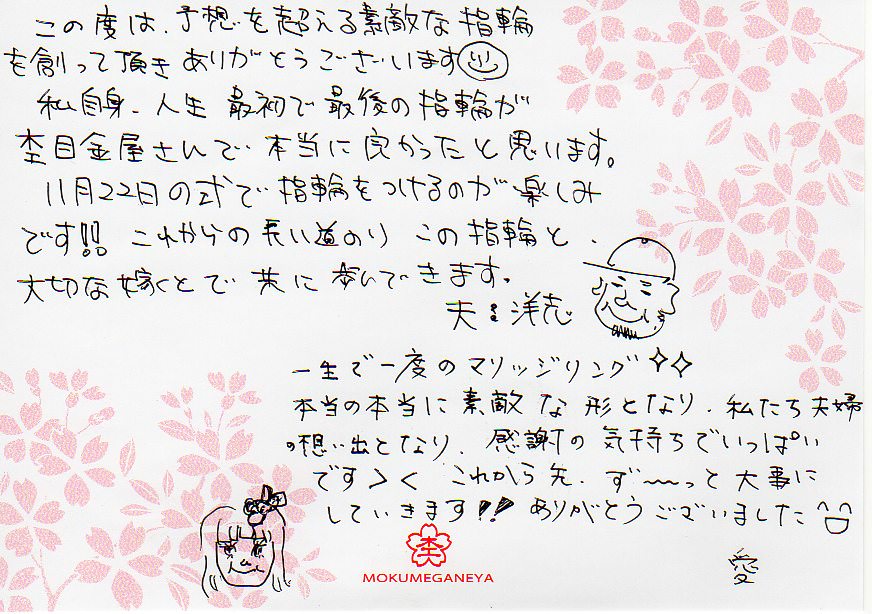 この度は、予想を超える素敵な指輪
を創って頂きありがとうございます
私自身、人生 最初で最後の指輪が
杢目金屋さんで 本当に良かったと思います。
11月22日の式で指輪をつけるのが楽しみ
です!! これからの長い道のり この指輪と、
大切な嫁くとで 共に歩いてきます。
夫:洋志
一生で一度のマリッジリング
本当の本当に素敵な形となり、私たち夫婦
の想い出となり、感謝の気持ちでいっぱい
です>< これから先、ず〜っと大事に
していきます!! ありがとうございました^D^
愛
杢
MOKUMEGANEYA